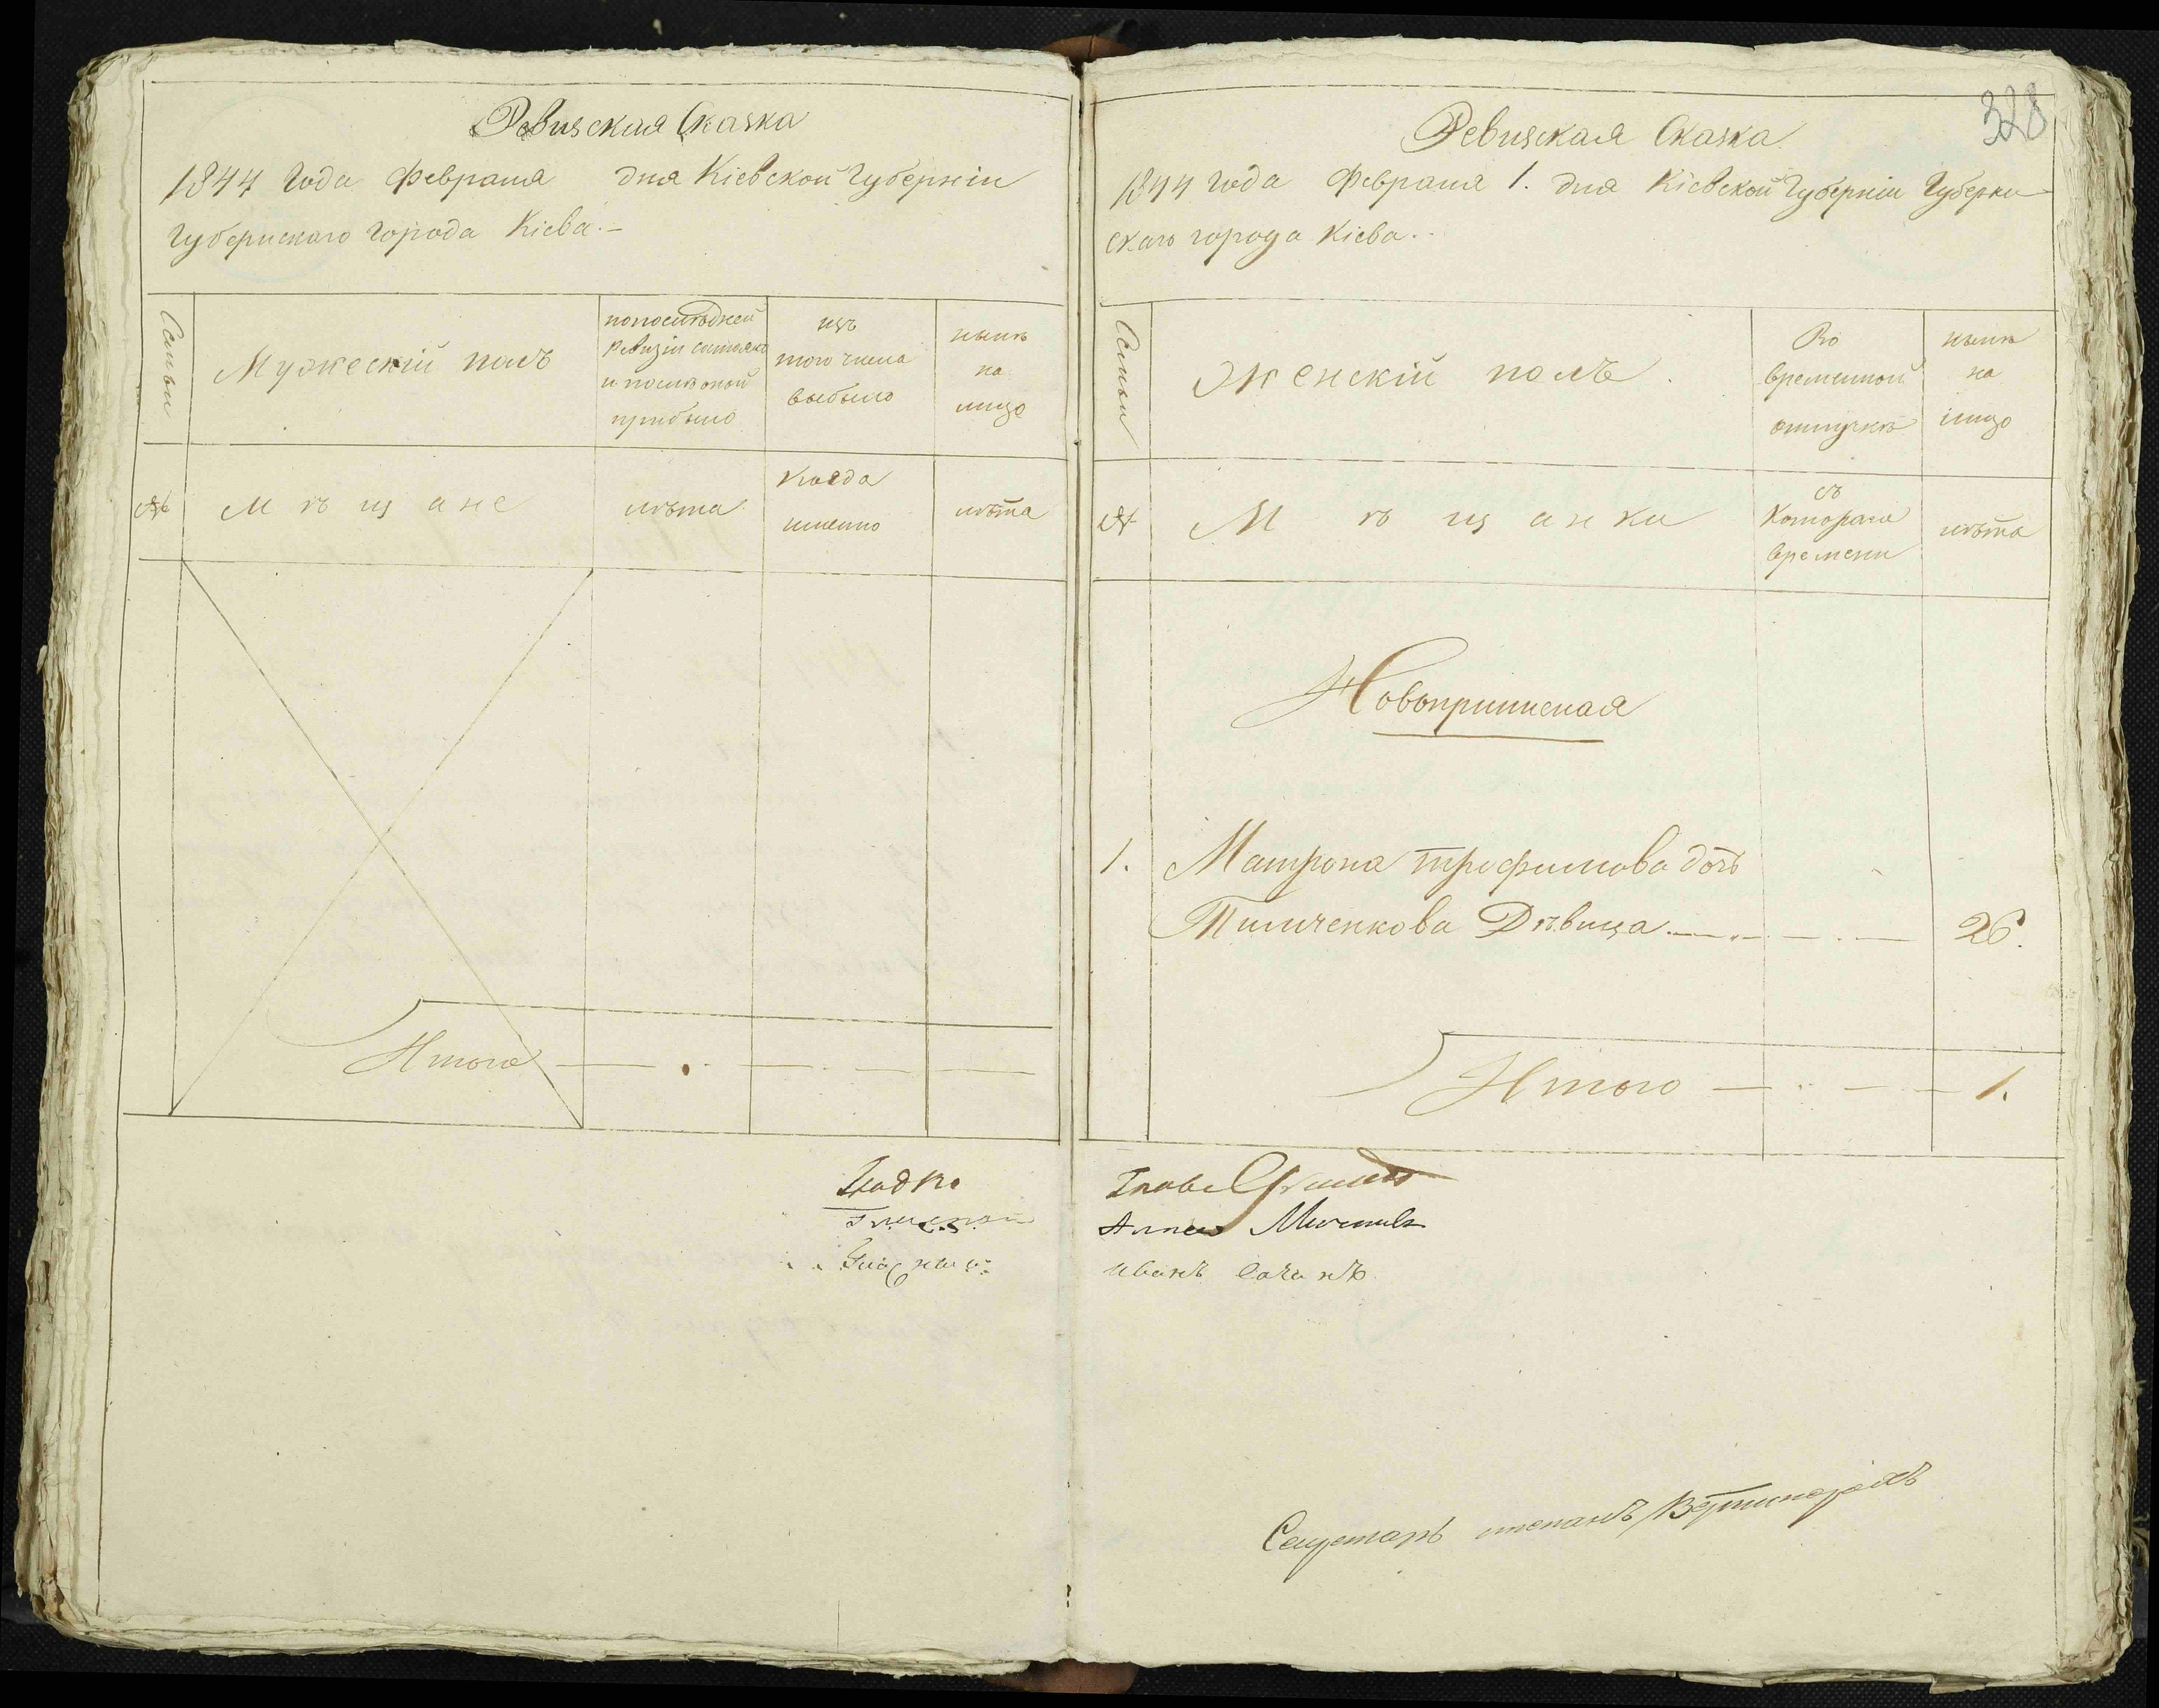 Ревизская Сказка
1844 года февраля дня Кіевской Губерніи
Губернскаго города Кіева.
Семьи
Мужескій полъ
по последней
ревизіи состояло
и после оной
прибыло
изъ
того числа
выбыло
ныне
на
лицо
№
Мѣщане
лѣта
Когда
именно
лѣта
Итого
328
Ревизская Сказка
1844 года февраля 1. дня Кіевской Губерніи Губерн
скаго города Кіева.
Семьи
Женскій полъ.
Во
временной
отлучкѣ
ныне
на
лицо
№
Мѣщанки
съ
Котораго
времени
лѣта
Новоприписная
1. Матрона трофимова дочь
Тимченкова Дѣвица 26.
Итого 1.
Глас
Иванъ
Секретарь степанъ